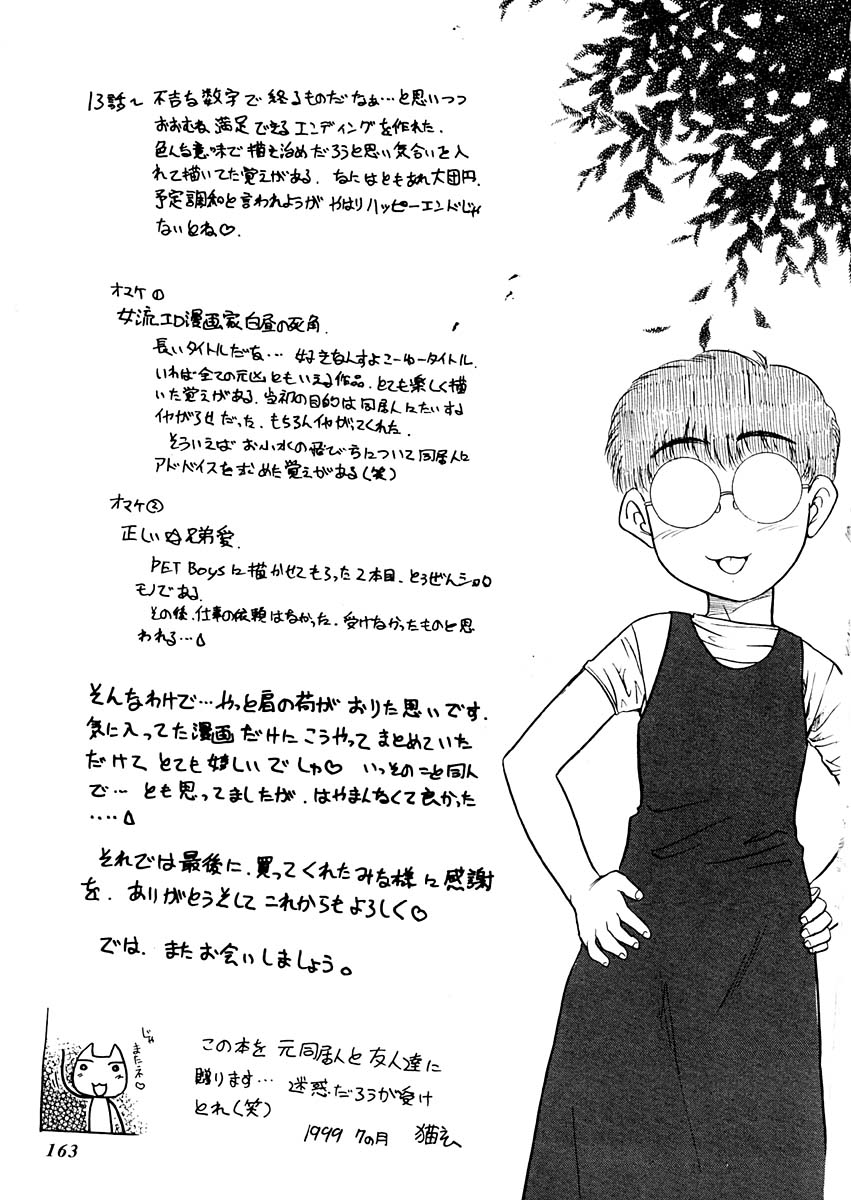 13話〜 不吉な数字で終るものだなぁ…と思いつつ
おおむね満足できるエンディングを作れた.
色んな意味で描き治めだろうと思い気合いを入
れて描いてた覚えがある. なにはともあれ大団円.
予定調和と言われようが やはりハッピーエンドじゃ
ないとね♡.
オマケ①
女流エロ漫画家白昼の死角.
長いタイトルだな… 好きなんすよこーゆータイトル.
いわば全ての元凶ともいえる作品. とても楽しく描
いた覚えがある. 当初の目的は同居人にたいする
イヤがらせだった. もちろんイヤがってくれた.
そういえば お小水の飛び方について同居人に
アドバイスを求めた覚えがある(笑)
オマケ②
正しい兄弟愛.
PET Boysに描かせてもらった2本目. とうぜんショタ
モノである.
その後、仕事の依頼はなかった. 受けなかったものと思
われる…
そんなわけで…やっと肩の荷がおりた思いです.
気に入ってた漫画だけにこうやってまとめていた
だけて とても嬉しいでしゅ♡ いっそのこと同人
で… とも思ってましたが. はやまんなくて良かった
….
それでは最後に. 買ってくれたみな様に感謝
を. ありがとうそして これからもよろしく♡
では. またお会いしましょう。
じゃ
またネ♡
この本を 元同居人と友人達に
贈ります… 迷惑だろうが受け
とれ(笑)
1999 7の月 猫玄
163